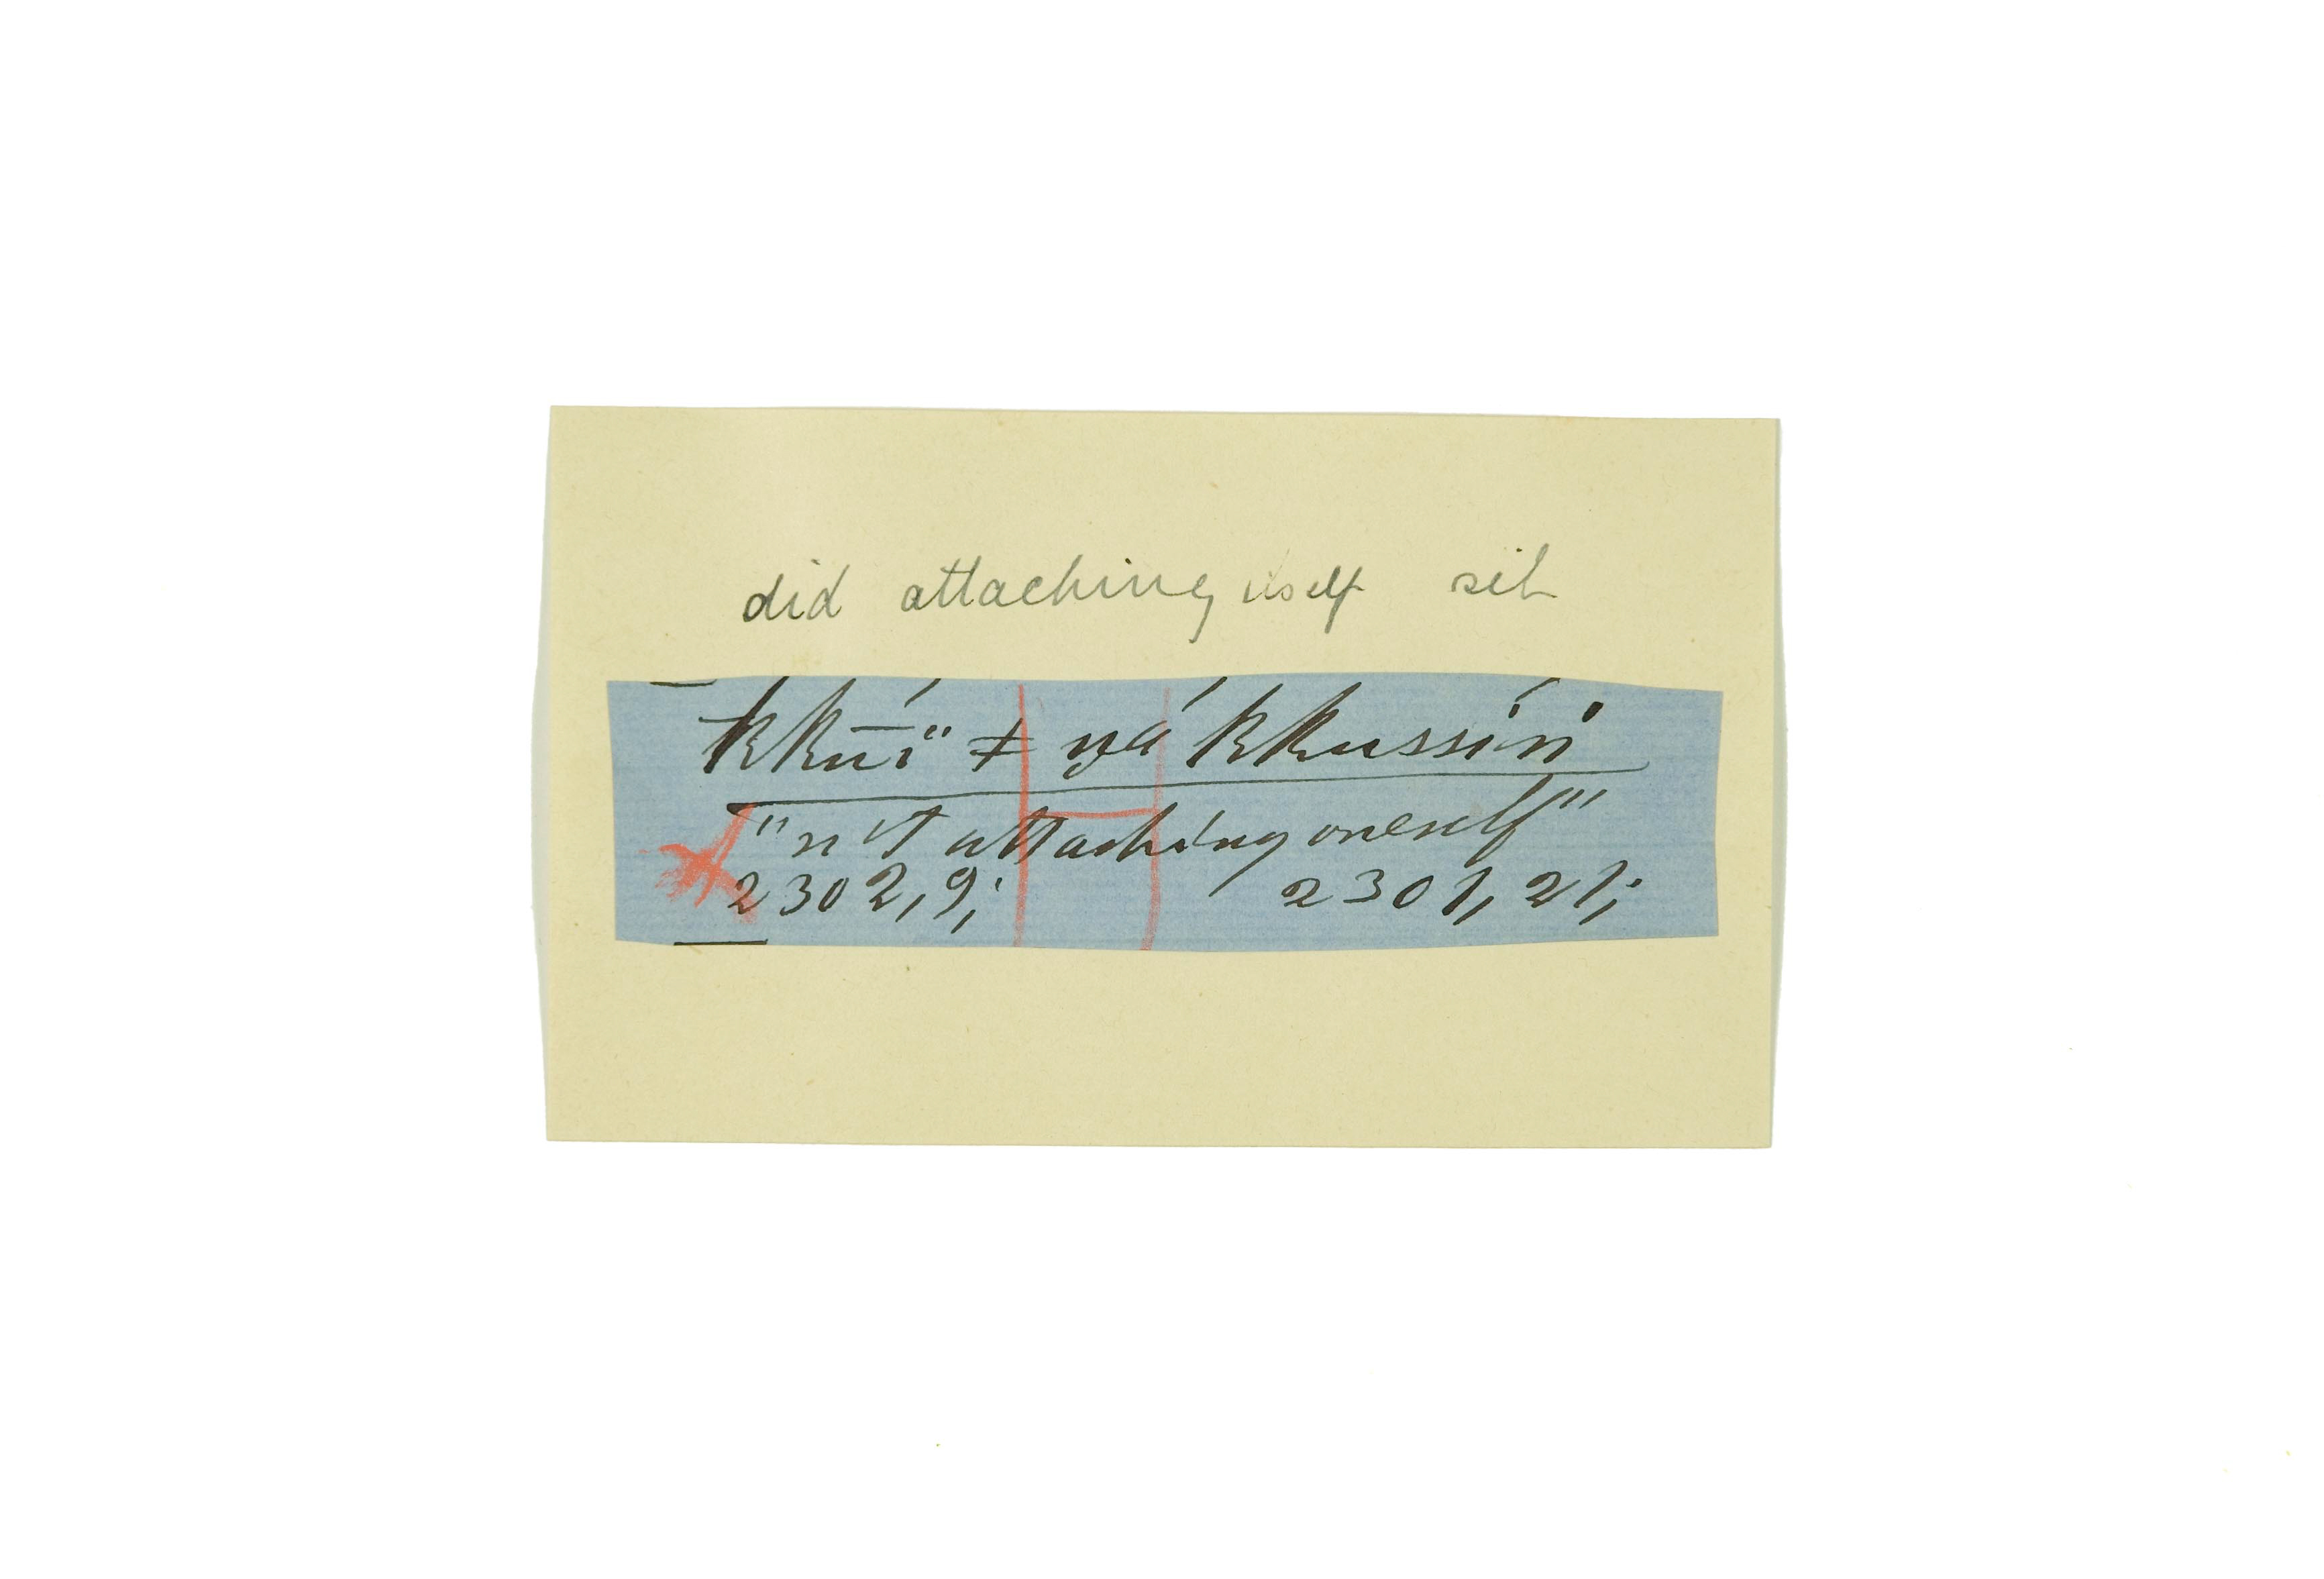 did attaching itself sit
kkūí" ǂ ŋá kkussín
"n't attaching oneself"
2302,9; 2301,21;